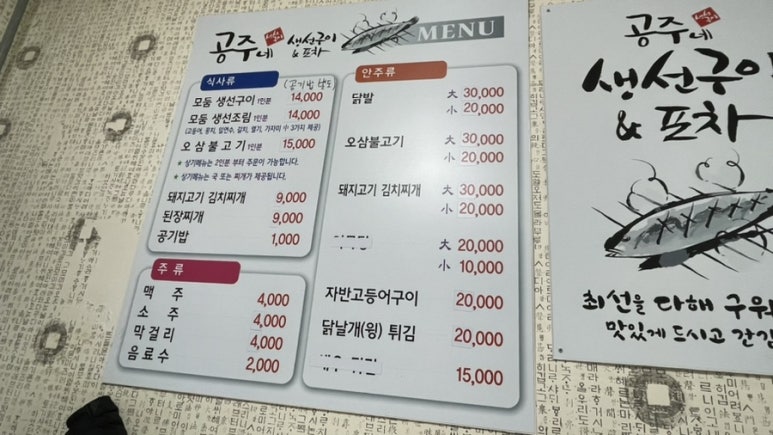 공주네 생선구이 & 포차 MENU
식사류 (공기밥 별도)
모둠 생선구이 1인분 14,000
모둠 생선조림 1인분 14,000
(고등어, 꽁치, 임연수, 갈치, 열기, 가자미 中 3가지 제공)
오삼불고기 1인분 15,000
* 상기메뉴는 2인분 부터 주문이 가능합니다.
* 상기메뉴는 국 또는 찌개가 제공됩니다.
돼지고기 김치찌개 9,000
된장찌개 9,000
공기밥 1,000
주류
맥주 4,000
소주 4,000
막걸리 4,000
음료수 2,000
안주류
닭발 大 30,000
小 20,000
오삼불고기 大 30,000
小 20,000
돼지고기 김치찌개 大 30,000
小 20,000
大 20,000
小 10,000
자반고등어구이 20,000
닭날개(윙) 튀김 20,000
15,000
공주네
생선구이
& 포차
최선을 다해 구워
맛있게 드시고 간